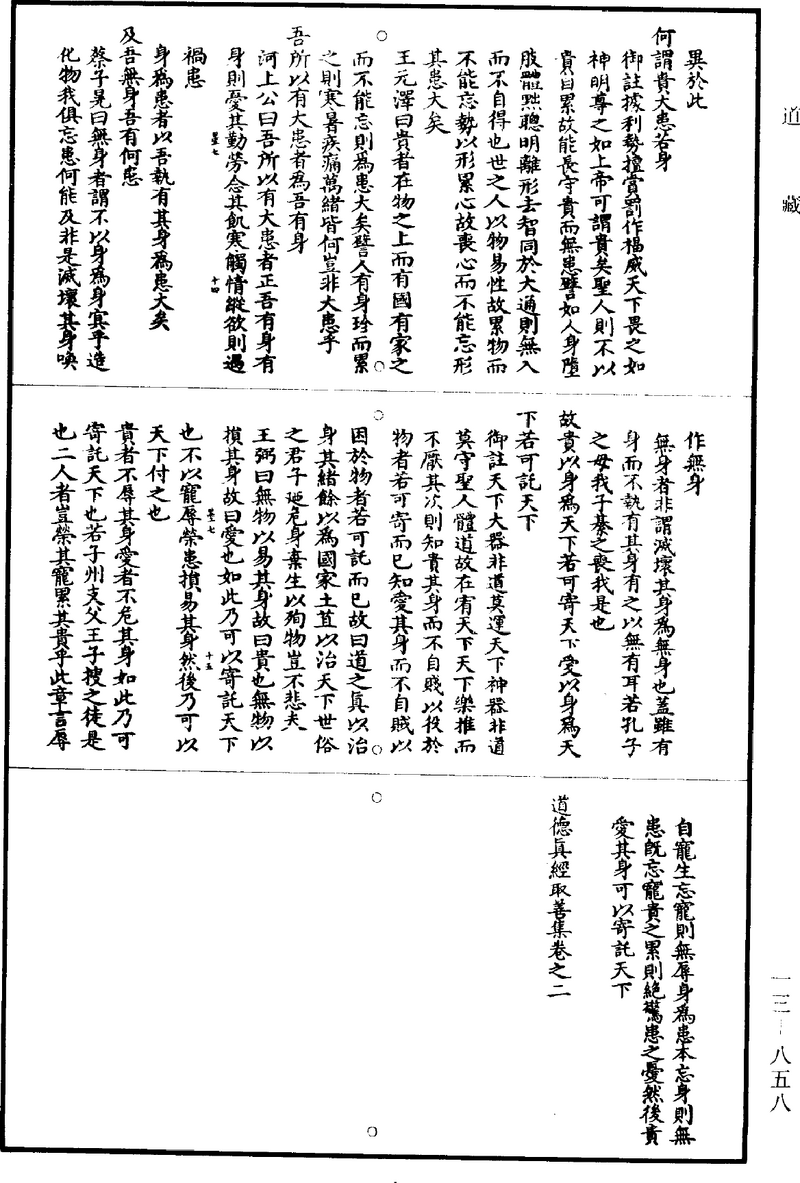 道藏
異於此
何謂貴大患若身
御註據利勢擅賞罰作福威天下畏之如
神明尊之如上帝可謂貴矣聖人則不以
貴自累故能長守貴而無患譬如人身墮
肢體黜聰明離形去智同於大通則無入
而不自得也世之人以物易性故累物而
不能忘勢以形累心故喪心而不能忘形
其患大矣
王元澤曰貴者在物之上而有國有家之
而不能忘則為患大矣譬人有身珍而累
之則寒暑疾痛萬緒皆何豈非大患乎
吾所以有大患者為吾有身
河上公曰吾所以有大患者正吾有身有
身則憂其勤勞念其飢寒觸情縱欲則遇
禍患
身為患者以吾執有其身為患大矣
及吾無身吾有何患
蔡子晃曰無身者謂不以身為身冥乎造
化物我俱忘患何能及非是滅壞其身喚
作無身
無身者非謂滅壞其身為無身也蓋雖有
身而不執有其身有之以無有耳若孔子
之毋我子綦之喪我是也
故貴以身為天下若可寄天下愛以身為天
下若可託天下
御註天下大器非道莫運天下神器非道
莫守聖人體道故在宥天下天下樂推而
不厭其次則知貴其身而不自賤以役於
物者若可寄而已知愛其身而不自賊以
困於物者若可託而已故曰道之真以治
身其緒餘以為國家土苴以治天下世俗
之君子廼危身棄生以殉物豈不悲夫
王弼曰無物以易其身故曰貴也無物以
損其身故曰愛也如此乃可以寄託天下
也不以寵辱榮患損易其身然後乃可以
天下付之也
貴者不辱其身愛者不危其身如此乃可
寄託天下也若子州支父王子搜之徒是
也二人者豈榮其寵累其貴乎此章言辱
自寵生忘寵則無辱身為患本忘身則無
患既忘寵貴之累則絕驚患之憂然後貴
愛其身可以寄託天下
道德真經取善集卷之二
一三－八五八